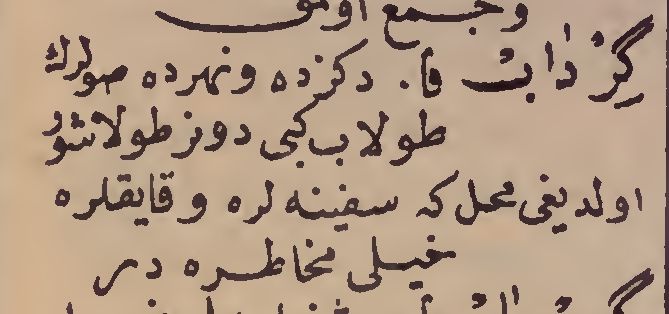 وجمع اولنق
گِرْدٰابْ فا. دكزده ونهرده صولرك
طولاب كبى دونر طولاشور
اولديغى محل كه سفينه لره وقايقلره
خيلى مخاطره در